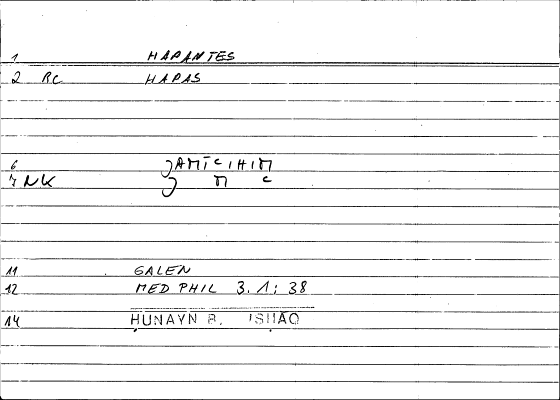 1 HAPANTES
2 RC HAPAS
6 JAMĪCIHIM
7 NK J M C
11 GALEN
12 MED PHIL 3. 1; 38
14 ḤUNAYN B. ISḤAQ